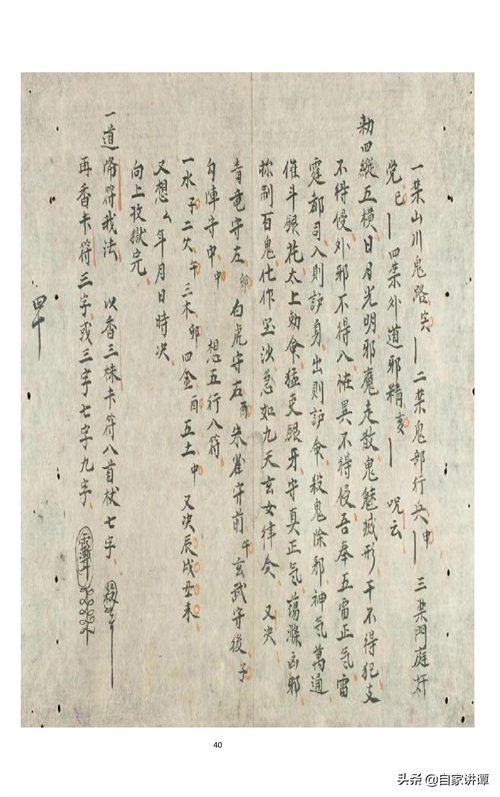 一禁山川鬼路寅 二禁鬼部行兵申 三禁門庭奸
党巳 四禁外道邪精亥 呪云
勅四縱五横日月光明邪魔走散鬼魅滅形干不得犯支
不得侵外邪不得入怪異不得侵吾奉五雷正气雷
霆都司入則护身出則护命殺鬼除邪神气萬通
催斗 太上勅令猛吏 牙守真正气蕩滌凶邪
捺制百鬼化作 急如九天玄女律令 又決
青竜守左卯 白虎守右酉 朱雀守前午 玄武守後子
勾陣守中申 想五行入符
一水子 二火午 三木卯 四金酉 五土申 又決辰戌丑未
又想 年月日時决
向上 獄完
一道 符我法 以香三株卡符八首 七字
再香卡符三字或三字七字九字
四十
40
头条 @自家讲谭